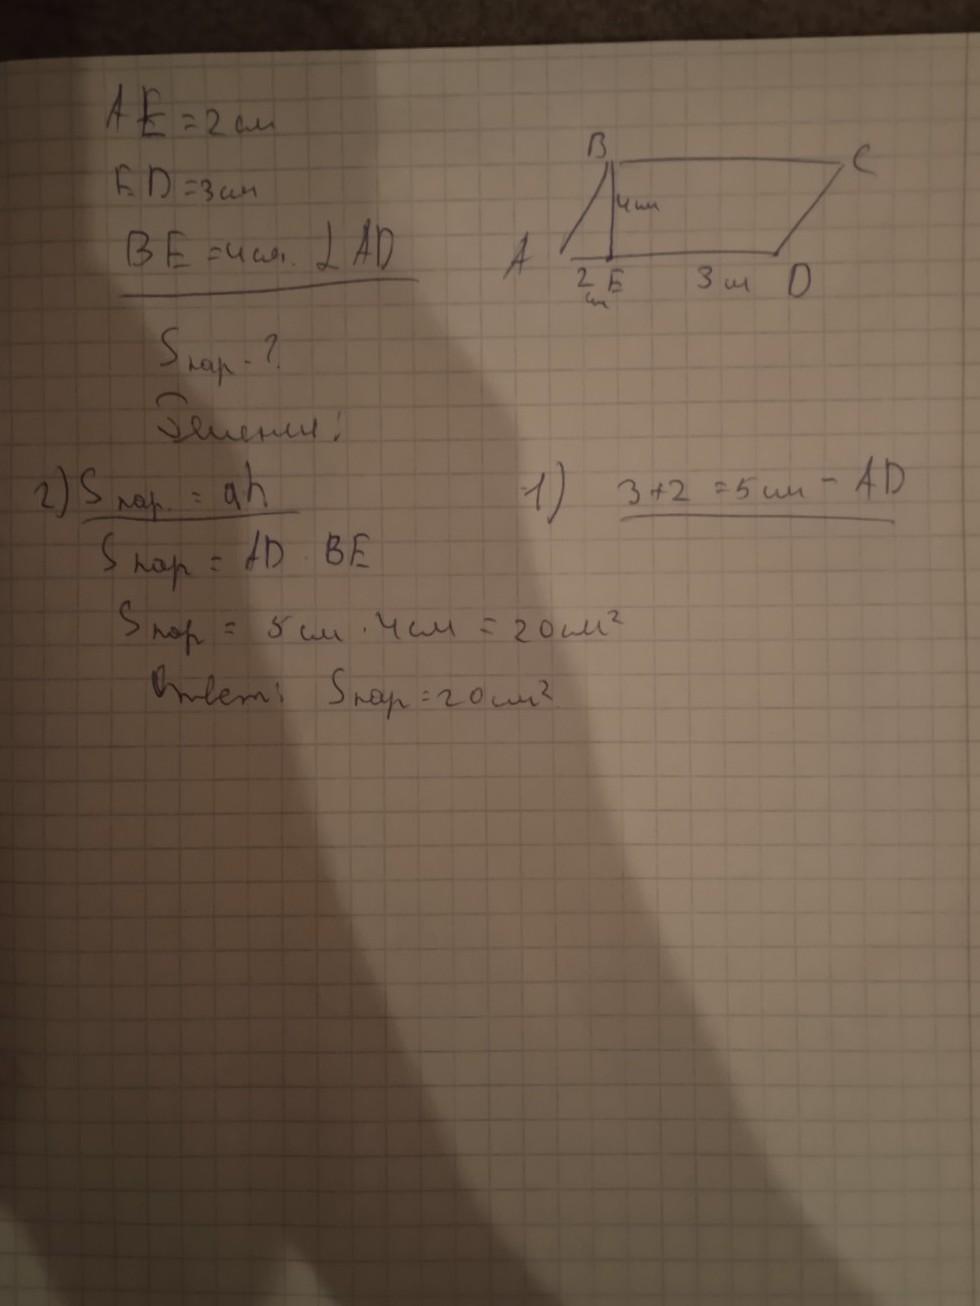 AE = 2 см
ED = 3 см
BE = 4 см. ⊥ AD
B C
4 см
A 2 см E 3 см D
Sпар - ?
Решение:
2) Sпар. = ah
1) 3+2 = 5 см - AD
Sпар = AD · BE
Sпар = 5 см · 4 см = 20 см²
Ответ: Sпар = 20 см²